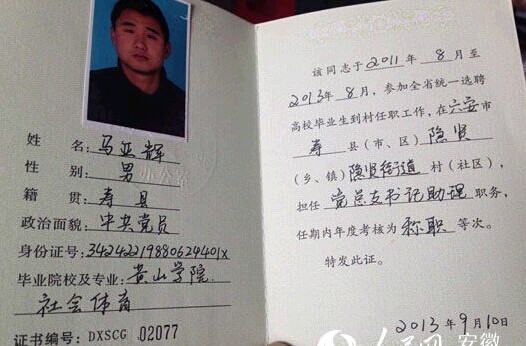 姓 名:马亚辉
性 别:男
籍 贯:寿县
政治面貌:中共党员
身份证号:34242219880624401X
毕业院校及专业:黄山学院
社会体育
证书编号:DXSCG 02077
该同志于2011年8月至
2013年8月,参加全省统一选聘
高校毕业生到村任职工作,在六安市
寿县(市、区)隐贤
(乡、镇)隐贤街道村(社区),
担任党总支书记助理职务,
任期内年度考核为称职等次。
特发此证。
2013年9月10日
人民网 安徽